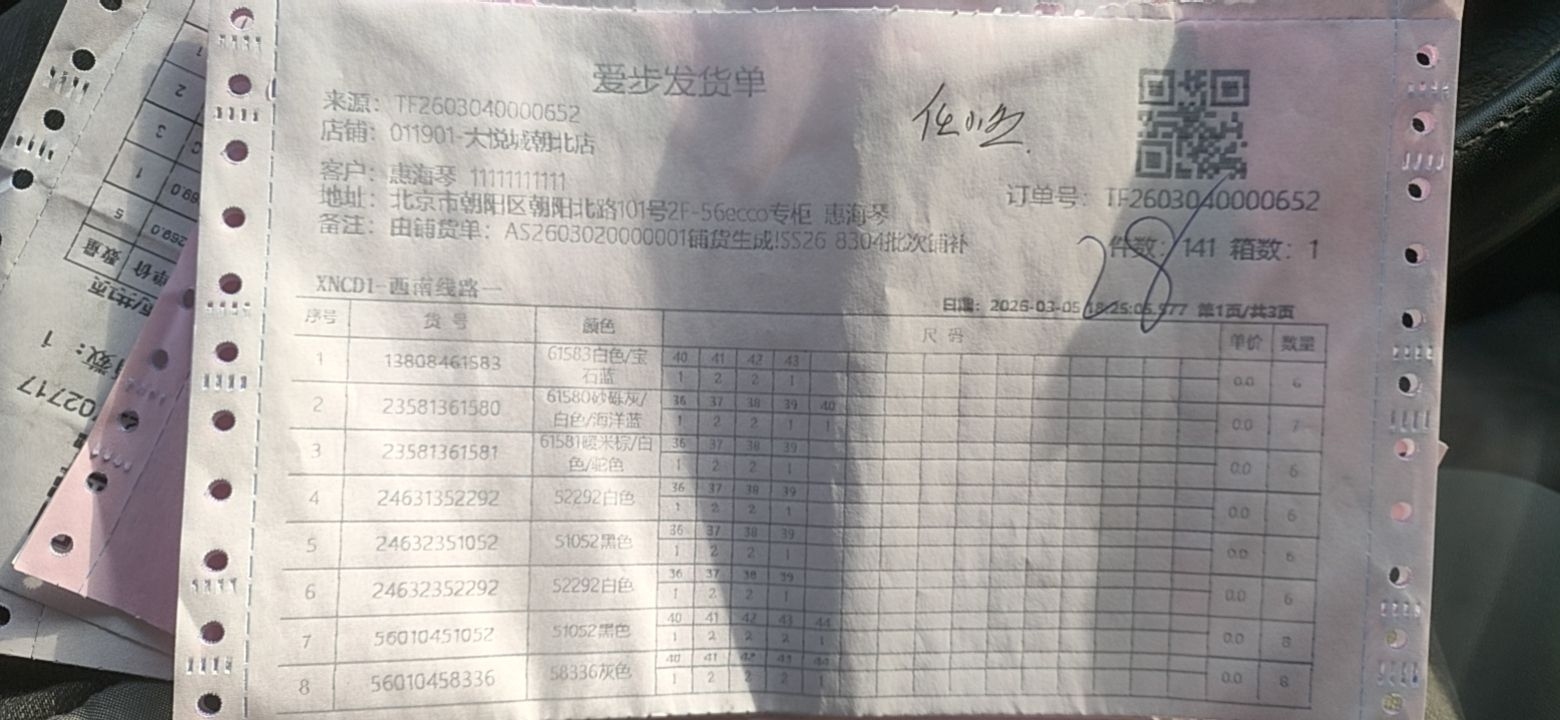 爱步发货单
来源：TF2603040000652
店铺：011901-大悦城朝北店
客户：惠海琴 11111111111
地址：北京市朝阳区朝阳北路101号2F-56ecco专柜 惠海琴
备注：由铺货单：AS2603020000001铺货生成!SS26 8304批次铺补
订单号：TF2603040000652
28
件数：141 箱数：1
XNCD1-西南线路一
日期：2026-03-05 18:25:05.977 第1页/共3页
序号 货号 颜色 尺码 单价 数量
1 13808461583 61583白色/宝石蓝 0.0 6
40 41 42 43
1 2 2 1
2 23581361580 61580砂砾灰/白色/海洋蓝 0.0 7
36 37 38 39 40
1 2 2 1 1
3 23581361581 61581暖米棕/白色/驼色 0.0 6
36 37 38 39
1 2 2 1
4 24631352292 52292白色 0.0 6
36 37 38 39
1 2 2 1
5 24632351052 51052黑色 0.0 6
36 37 38 39
1 2 2 1
6 24632352292 52292白色 0.0 6
36 37 38 39
1 2 2 1
7 56010451052 51052黑色 0.0 8
40 41 42 43 44
1 2 2 2 1
8 56010458336 58336灰色 0.0 8
40 41 42 43 44
1 2 2 2 1
数量
单价
5
269.0
1
3
2
1
数：1
02717